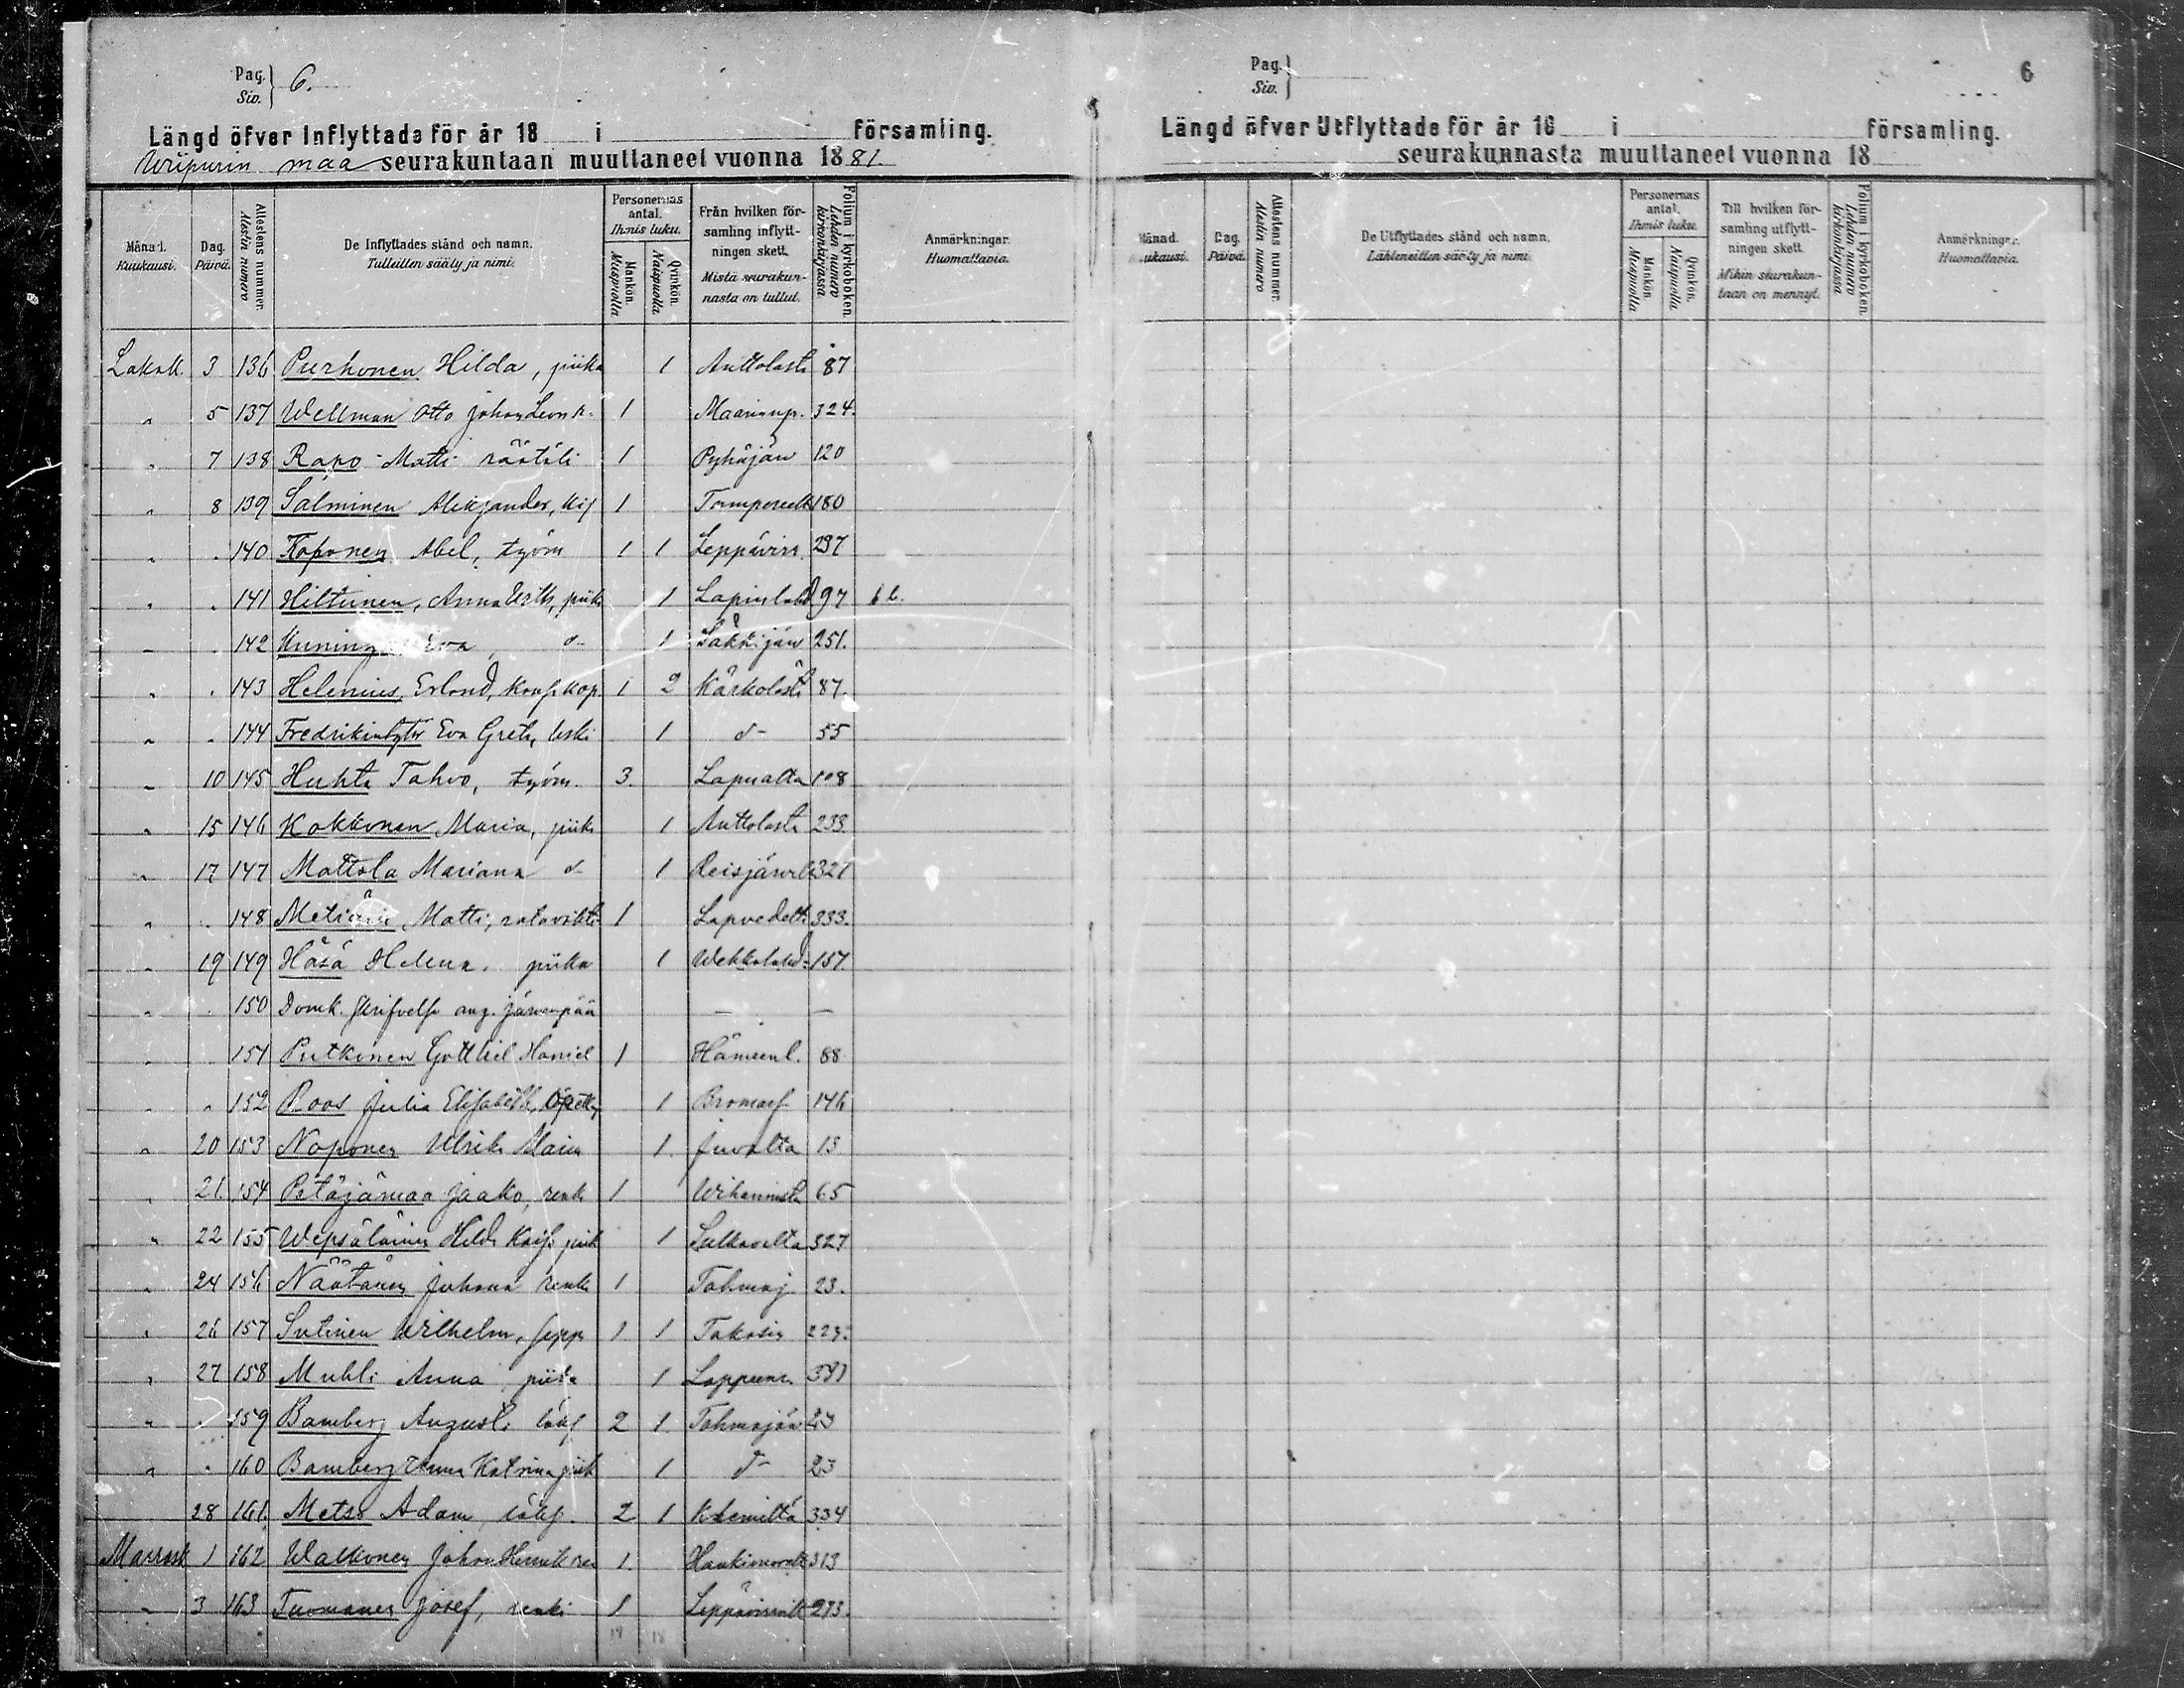 Pag. Siv. } 6.
Längd öfver Inflyttade för år 18 i församling.
Wiipurin maa seurakuntaan muuttaneet vuonna 1881
Månad. Kuukausi. | Dag. Päivä. | Attestens nummer. Alestin numero | De Inflyttades stånd och namn. Tulleitten sääty ja nimi. | Personernas antal. Ihmis luku. Mankön. Miespuolia | Qvinkön. Naispuolia | Från hvilken församling inflyttningen skett. Mistä seurakunnasta on tullut. | Folium i kyrkoboken. Lehden numero kirkonkirjassa | Anmärkningar. Huomattavia.
Lokak. 3 136 Purhonen Hilda, piika 1 Anttolasta 87
" 5 137 Wellman Otto Johan 1 Maarianp. 324.
" 7 138 Rapo Matti räätäli 1 Pyhäjän 120
" 8 139 Salminen Aleksander, 1 180
" " 140 Koponen Abel, työm 1 1 Leppävirr. 237
" " 141 Hiltunen, Anna piika 1 Lapinlahd 97
" " 142 1 Säkkijäv 251.
" " 143 Helenius, Erland, 1 2 Kärkolästä 87.
" " 144 Fredrikintytär Eva Greta, leski 1 d- 55
" 10 145 Huhta Tahvo, työm. 3. Lapualta 108
" 15 146 Kokkonen, Maria, piika 1 Anttolasta 233
" 17 147 Mattola Mariana d- 1 Reisjärv 327
" " 148 Matti, ratavahti 1 Lapvedeltä 333.
" 19 149 Häsä Helena, piika 1 Wehkalahd. 157.
" " 150 Domk. Järvenpää — —
" " 151 Putkinen Gottlieb Daniel 1 Hämeenl. 88
" " 152 Roos Julia Elisabeth, 1 Bromarf 146
" 20 153 Noponen Ulrika Maria 1. Juvalta 13
" 21. 154 Petäjämaa Jaako, renki 1 Wihannista 65
" 22 155 Wepsäläinen Hilda Kaisa piik 1 Sulkavalta 327
" 24 156 Näätänen Juhana renki 1 Tohmaj 23.
" 26 157 Sutinen Wilhelm, sepp 1 1
" 27 158 Muhli Anna piika 1 Lappeenr.
" " 159 Bamberg August, 2 1 Tohmajäv 23
" " 160 Bamberg Anna Katrina piik 1 d- 23
28 161. Metso Adam 2 1 334
Marrask 1 162 Walkonen Johan Henrik ren 1. 313
" 3 163 Tuomanen Josef, renki 1 Leppävirralt 273.
14 18
Pag. Siv. } 6
Längd öfver Utflyttade för år 18 i församling.
seurakunnasta muuttaneet vuonna 18
Månad. Kuukausi. | Dag. Päivä. | Attestens nummer. Alestin numero | De Utflyttades stånd och namn. Lähteneitten sääty ja nimi. | Personernas antal. Ihmis luku. Mankön. Miespuolia | Qvinkön. Naispuolia | Till hvilken församling utflyttningen skett. Mihin seurakuntaan on mennyt. | Folium i kyrkoboken. Lehden numero kirkonkirjassa | Anmärkningar. Huomattavia.